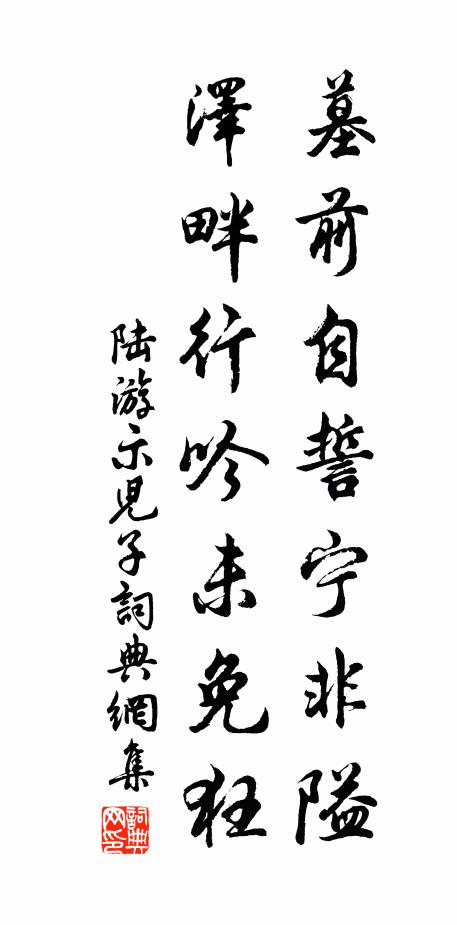 墓前自誓宁非隘
澤畔行吟未免狂
陆游示児子詞典網集
詞典网印